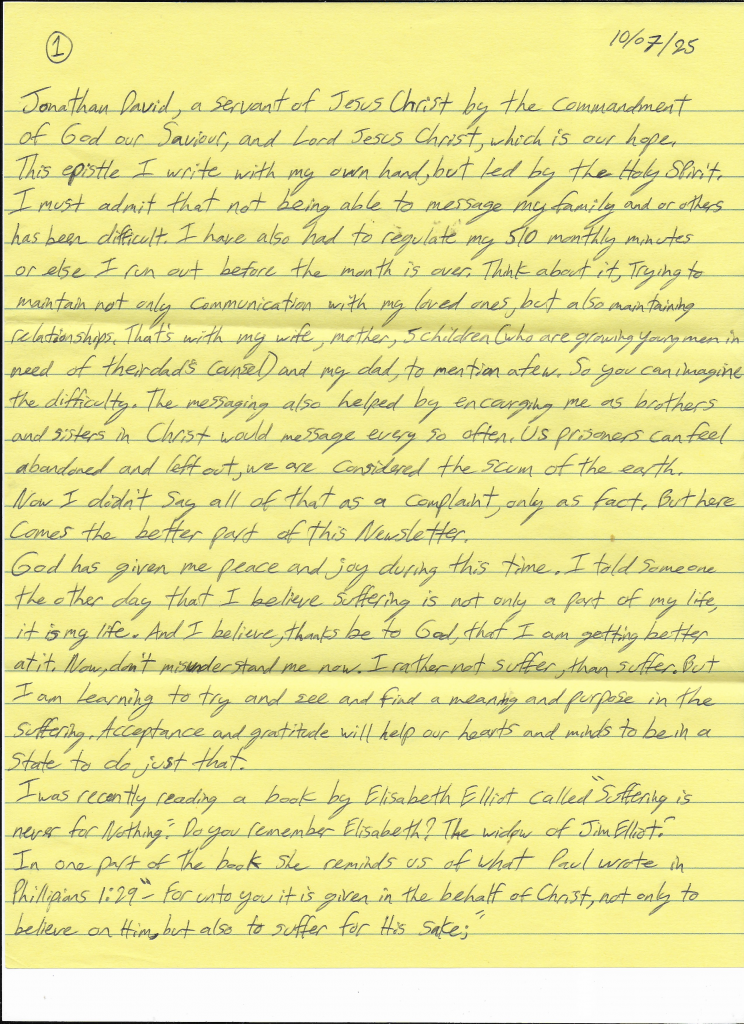 1
10/07/25
Jonathan David, a servant of Jesus Christ by the commandment
of God our Saviour, and Lord Jesus Christ, which is our hope.
This epistle I write with my own hand, but led by the Holy Spirit.
I must admit that not being able to message my family and or others
has been difficult. I have also had to regulate my 510 monthly minutes
or else I run out before the month is over. Think about it, Trying to
maintain not only communication with my loved ones, but also maintaining
relationships. That's with my wife, mother, 5 children (who are growing young men in
need of their dad's counsel) and my dad, to mention a few. So you can imagine
the difficulty. The messaging also helped by encourging me as brothers
and sisters in Christ would message every so often. Us prisoners can feel
abandoned and left out, we are considered the scum of the earth.
Now I didn't say all of that as a complaint, only as fact. But here
comes the better part of this Newsletter.
God has given me peace and joy during this time. I told someone
the other day that I believe suffering is not only a part of my life,
it is my life. And I believe, thanks be to God, that I am getting better
at it. Now, don't misunderstand me now. I rather not suffer, than suffer. But
I am learning to try and see and find a meaning and purpose in the
suffering. Acceptance and gratitude will help our hearts and minds to be in a
state to do just that.
I was recently reading a book by Elisabeth Elliot called "Suffering is
never for Nothing". Do you remember Elisabeth? The widow of Jim Elliot?
In one part of the book she reminds us of what Paul wrote in
Phillipians 1:29 "- For unto you it is given in the behalf of Christ, not only to
believe on Him, but also to suffer for His sake;"